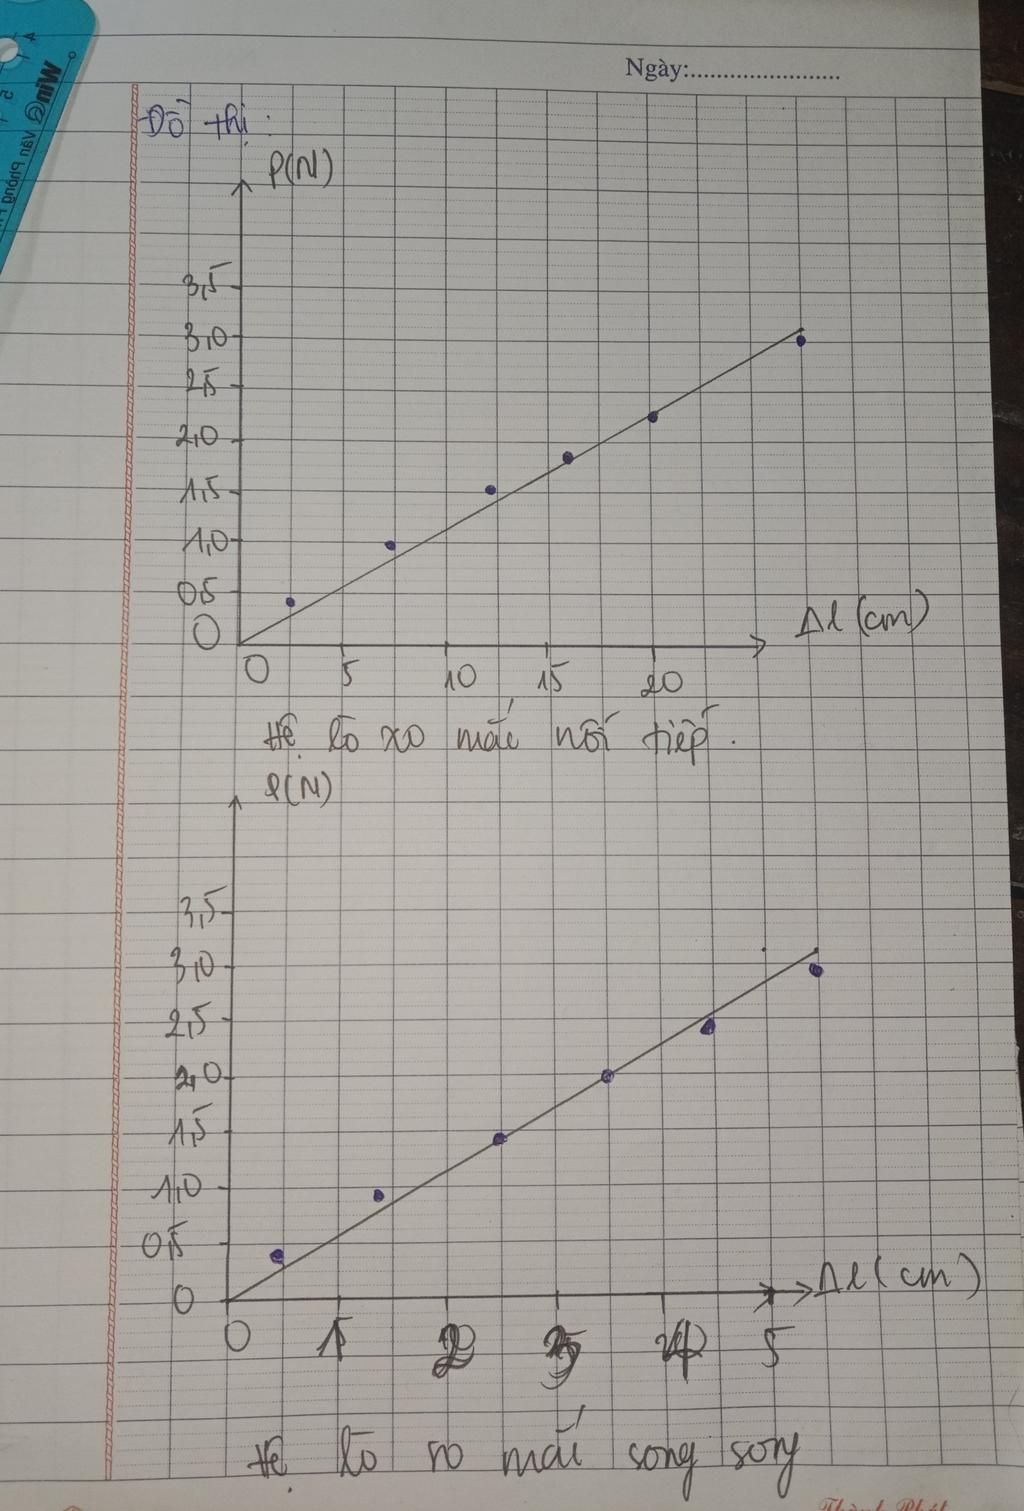 Win@
Văn Phòng
Ngày:........................
Đồ thị:
P(N)
3,5
3,0
2,5
2,0
1,5
1,0
0,5
0
0 5 10 15 20
Δl (cm)
Hệ lò xo mắc nối tiếp.
P(N)
3,5
3,0
2,5
2,0
1,5
1,0
0,5
0
0 1 2 3 4 5
Δl (cm)
Hệ lò xo mắc song song